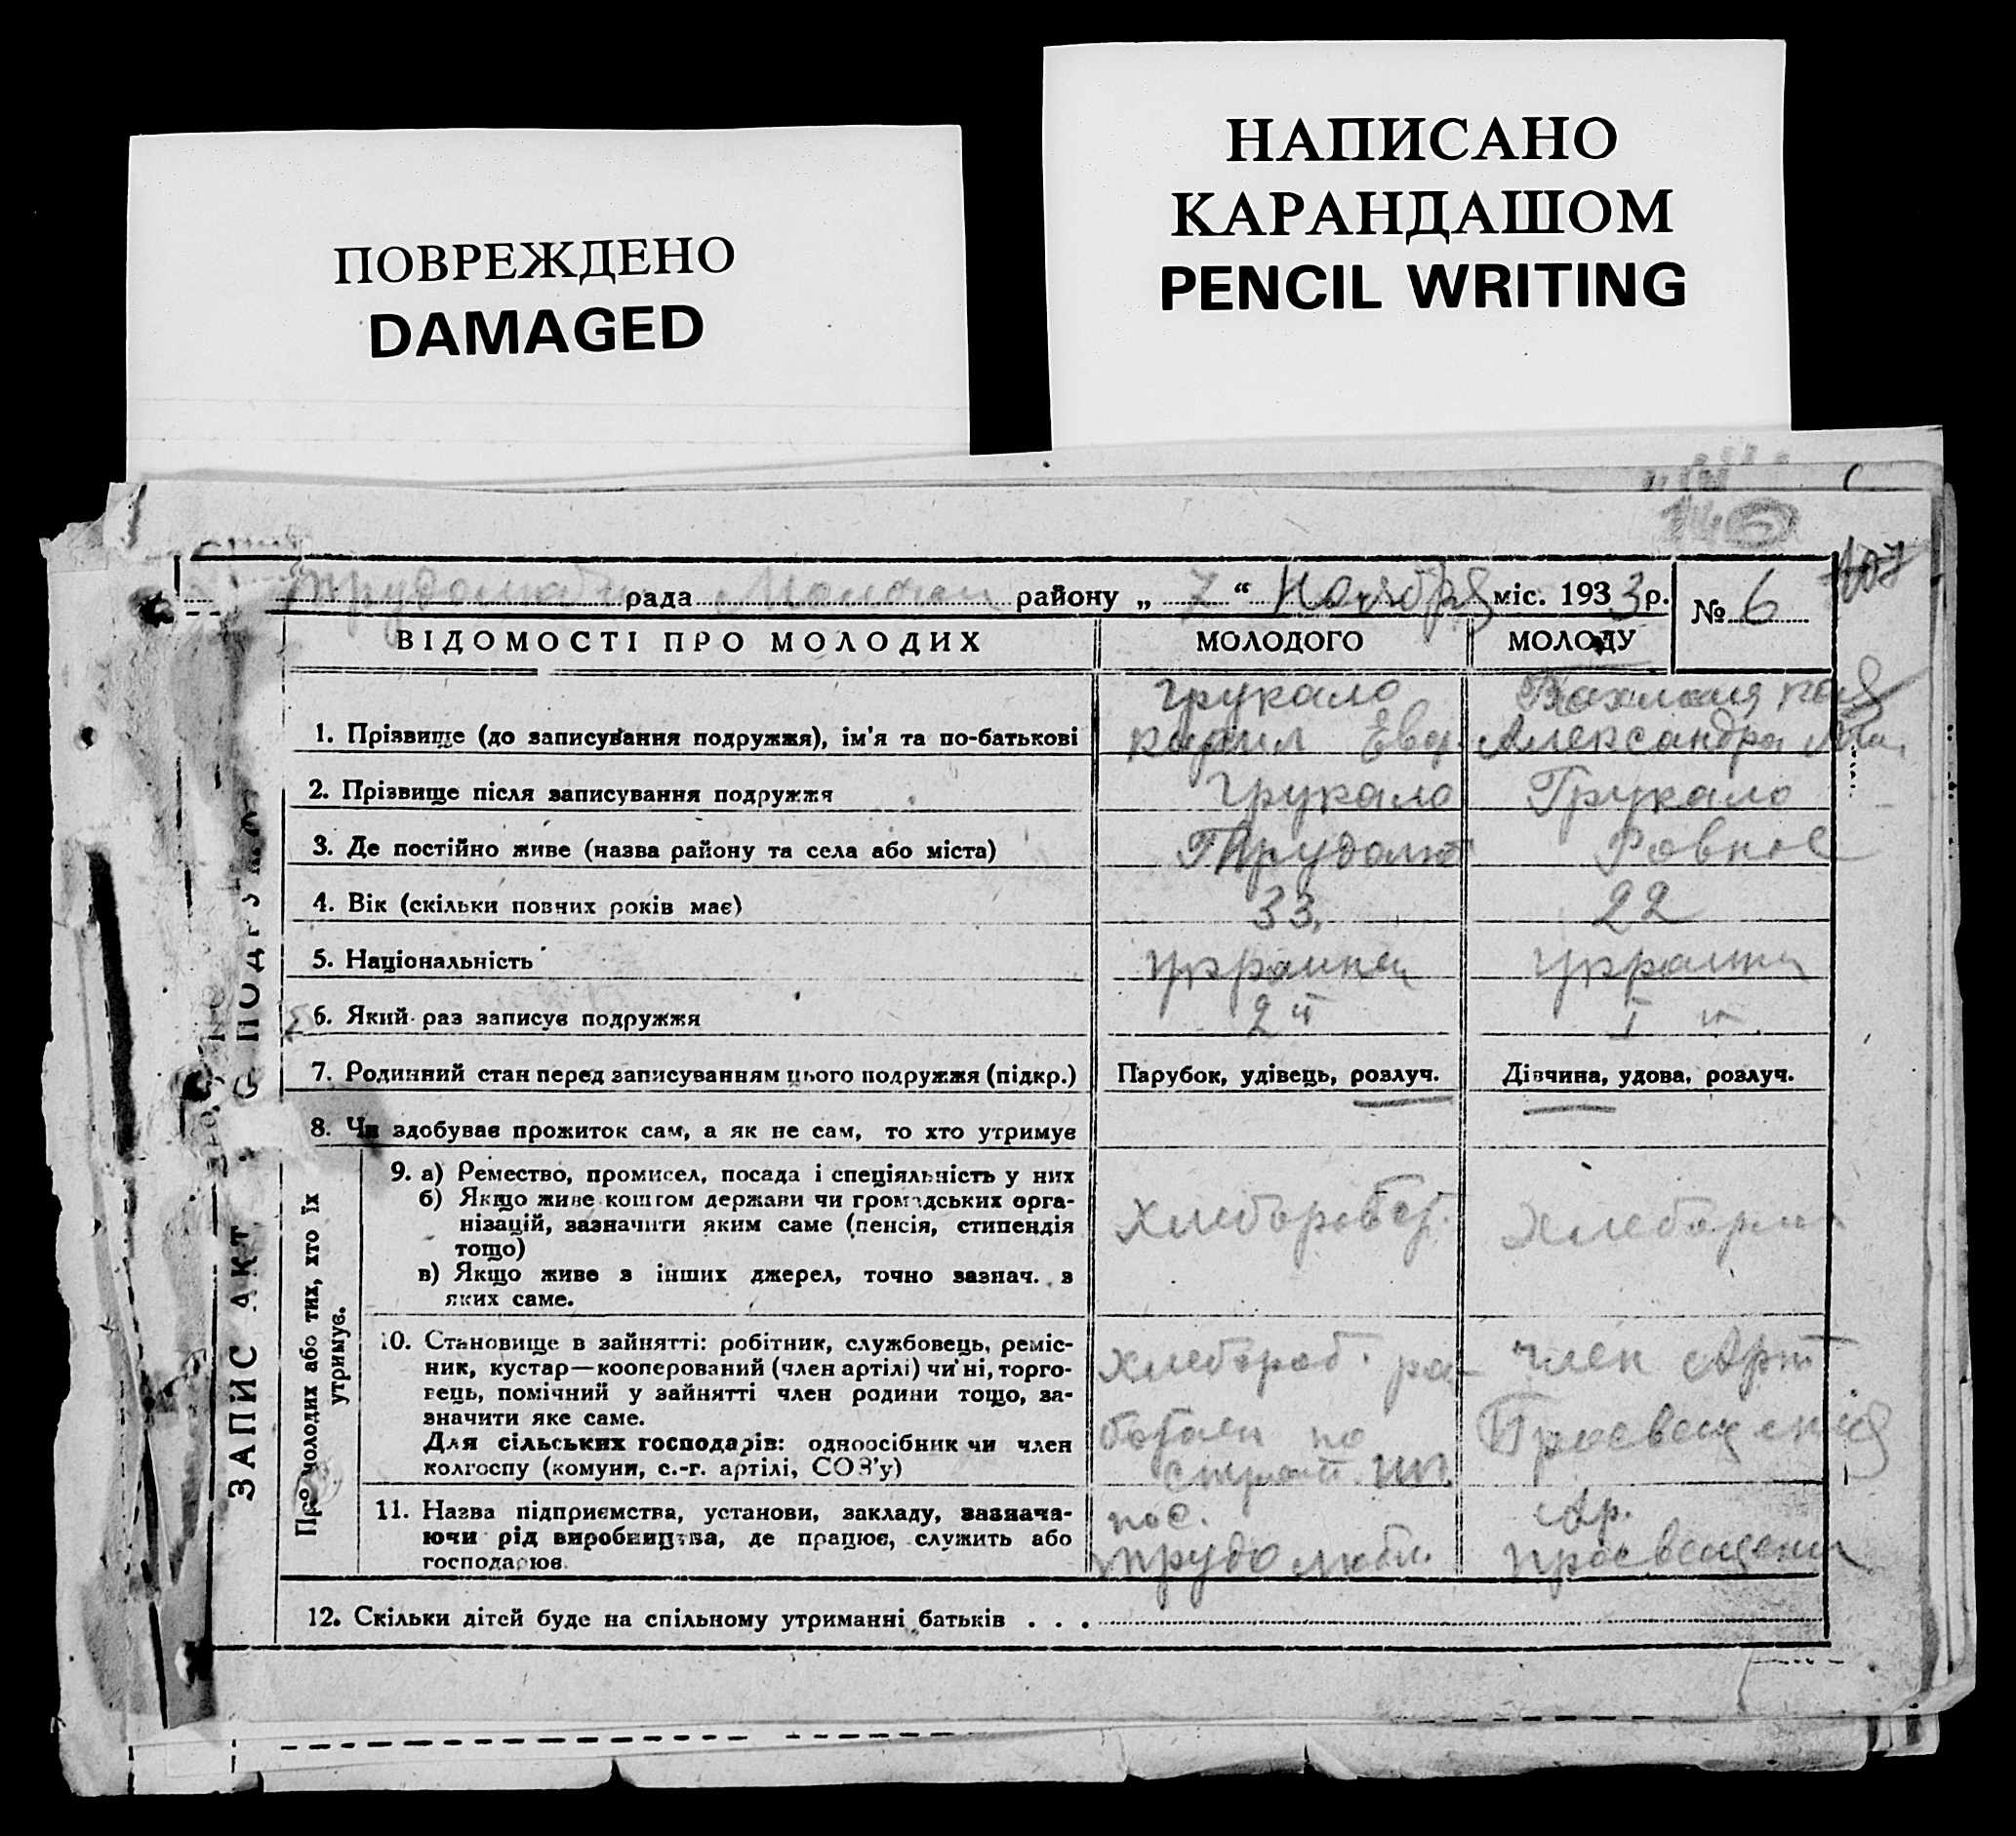 ПОВРЕЖДЕНО
DAMAGED
НАПИСАНО
КАРАНДАШОМ
PENCIL WRITING
107
рада района району „ 7 “ Ноября міс. 1933 р. № 6
ВІДОМОСТІ ПРО МОЛОДИХ МОЛОДОГО МОЛОДУ
Грукало
1. Прізвище (до записування подружжя), ім'я та по-батькові Кирил Евд. Александра
2. Прізвище після записування подружжя Грукало Грукало
3. Де постійно живе (назва району та села або міста) Трудолюб Ровное
4. Вік (скільки повних років має) 33. 22
5. Національність украинец украинка
6. Який раз записує подружжя 2й I й
7. Родинний стан перед записуванням цього подружжя (підкр.) Парубок, удівець, розлуч. Дівчина, удова, розлуч.
8. Чи здобуває прожиток сам, а як не сам, то хто утримує
9. а) Ремество, промисел, посада і спеціяльність у них
б) Якщо живе коштом держави чи громадських орга-
нізацій, зазначити яким саме (пенсія, стипендія
тощо)
в) Якщо живе з інших джерел, точно зазнач. з
яких саме.
Хлебороб
10. Становище в зайнятті: робітник, службовець, реміс-
ник, кустар—кооперований (член артілі) чи ні, торго-
вець, помічний у зайнятті член родини тощо, за-
значити яке саме.
Для сільських господарів: одноосібник чи член
колгоспу (комуни, с.-г. артілі, СОЗ'у)
Хлебороб. ра- член Арт
ботает по Просвещения
11. Назва підприємства, установи, закладу, зазнача-
ючи рід виробництва, де працює, служить або
господарює.
пос. Ар.
трудолюбл. просвещения
12. Скільки дітей буде на спільному утриманні батьків . . .
ЗАПИС АКТ
Про молодих або тих, хто їх
утримує.